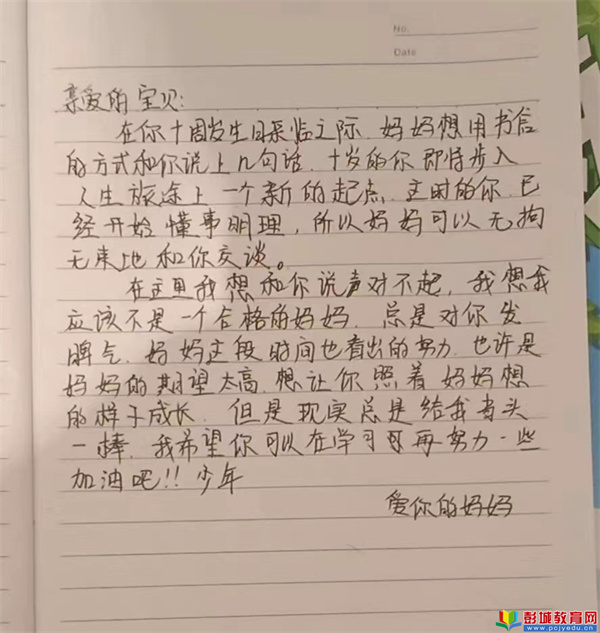 No.
Date
亲爱的宝贝:
在你十周岁生日来临之际,妈妈想用书信
的方式和你说上几句话,十岁的你即将步入
人生旅途上一个新的起点,这时的你,已
经开始懂事明理,所以妈妈可以无拘
无束地和你交谈。
在这里我想和你说声对不起,我想我
应该不是一个合格的妈妈,总是对你发
脾气,妈妈这段时间也看出的努力,也许是
妈妈的期望太高,想让你照着妈妈想
的样子成长,但是现实总是给我当头
一棒,我希望你可以在学习再努力一些
加油吧!!少年
爱你的妈妈
彭城教育网
www.pcjyedu.cn